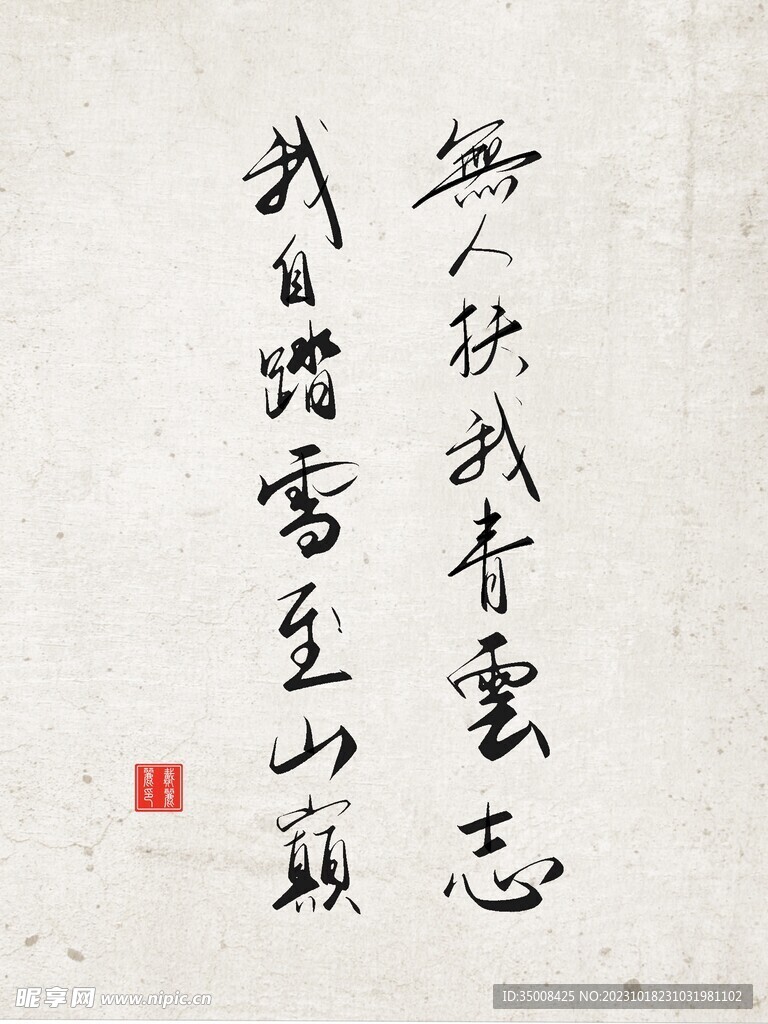 無人扶我青雲志
我自踏雪至山巔
昵享网 www.nipic.cn
ID:35008425 NO:20231018231031981102